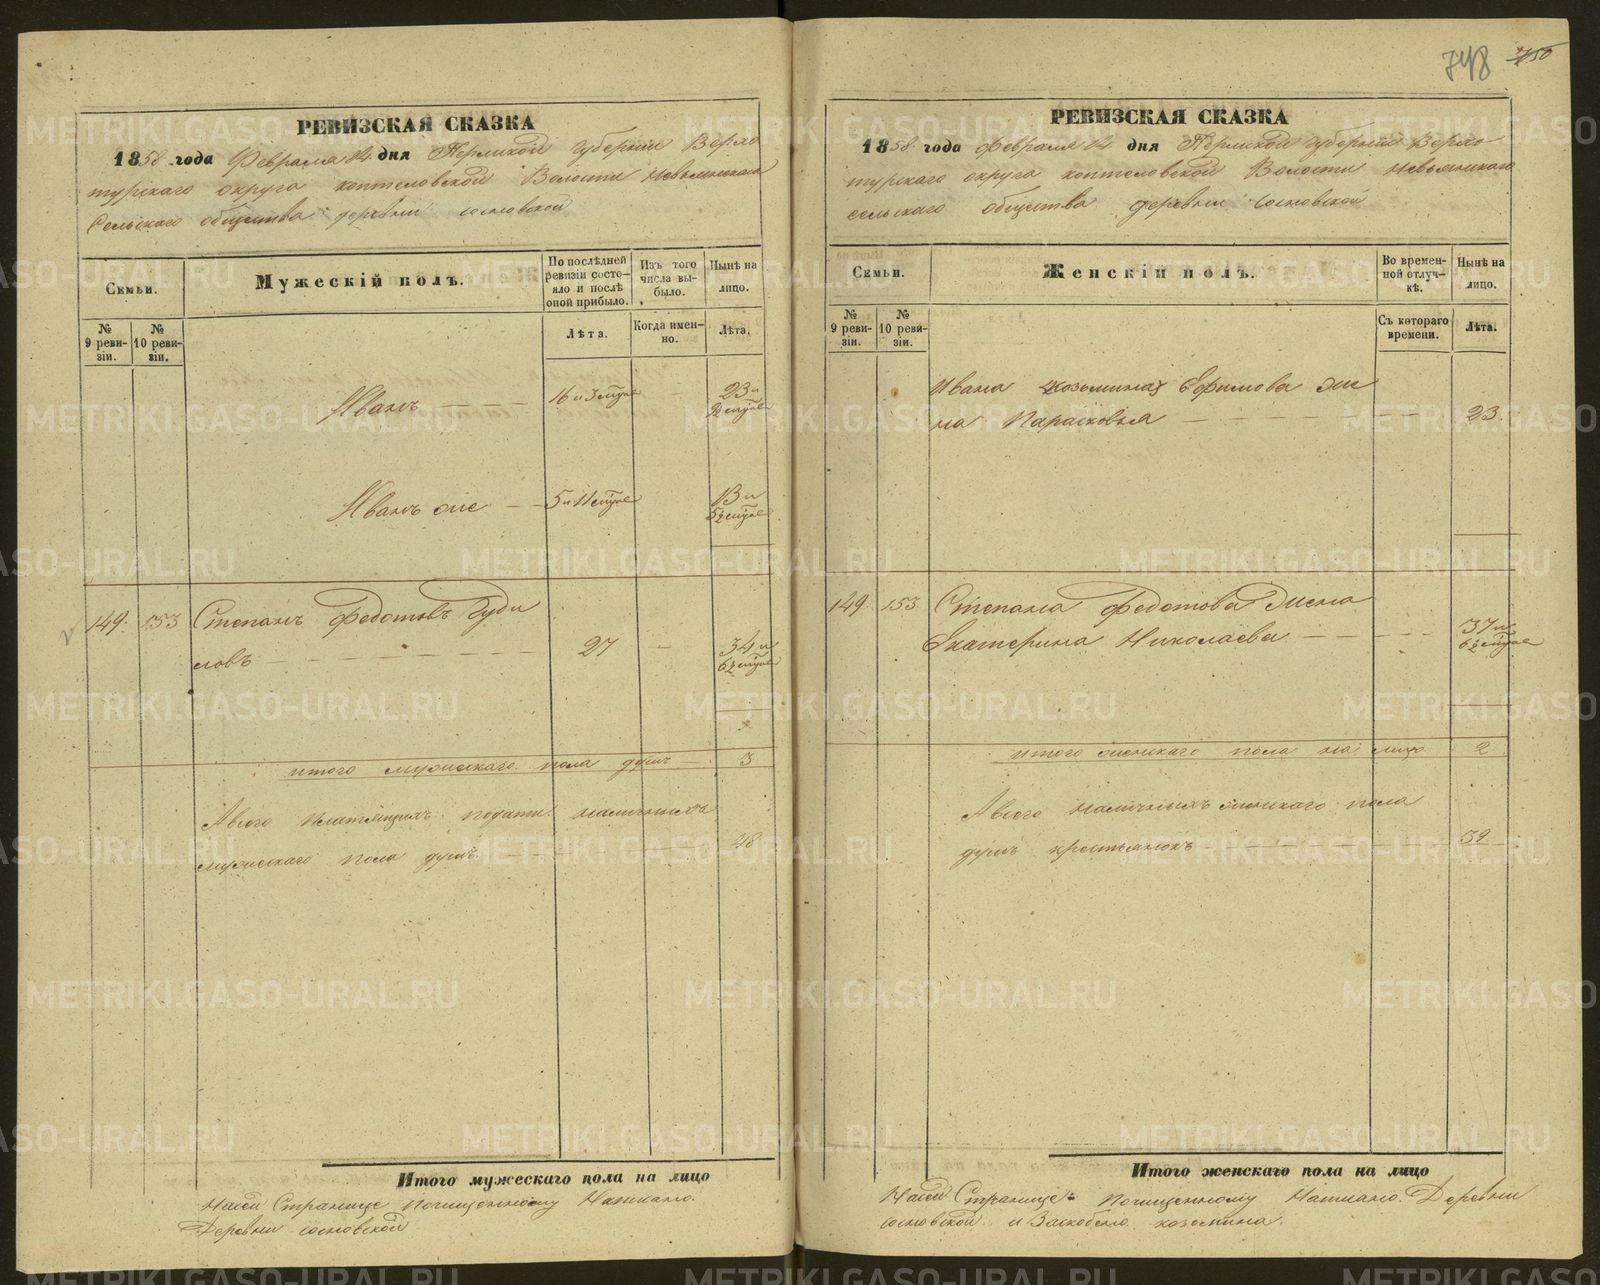 748 750
РЕВИЗСКАЯ СКАЗКА
1858 года Февраля 14 дня Пермской губернии Верхо
турскаго округа коптеловской Волости Невьянскаго
Сельскаго общества деревни сосновской
Семьи.
Мужескій полъ.
По послѣдней ревизіи состо-
яло и послѣ оной прибыло.
Изъ того числа вы-
было.
Нынѣ на лицо.
№ 9 реви-
зіи.
№ 10 реви-
зіи.
Лѣта.
Когда имен-
но.
Лѣта.
Иванъ 16 и 3 23 и
Иванъ же 5 и 11 13 и
149. 153 Степанъ Федотовъ Гуди
ловъ 27 34 и
итого мужескаго пола душъ 3
А всего платящихъ подати наличныхъ
мужескаго пола душъ. 48
Итого мужескаго пола на лицо
На сей Странице почищенному Написано.
Деревни сосновской
РЕВИЗСКАЯ СКАЗКА
1858 года Февраля 14 дня Пермской губернии Верхо
турскаго округа коптеловской Волости Невьянскаго
сельскаго общества деревни сосновской
Семьи.
Женскій полъ.
Во времен-
ной отлуч-
кѣ.
Нынѣ на лицо.
№ 9 реви-
зіи.
№ 10 реви-
зіи.
Съ котораго времени.
Лѣта.
Ивана козьмина Ефимова же
на Парасковья 23.
149. 153 Степана Федотова жена
Екатерина Николаева 37 и
итого женскаго пола на лицо 2
А всего наличныхъ женскаго пола
душъ крестьянокъ 59
Итого женскаго пола на лицо
На сей Странице почищенному Написано. Деревни
сосновской и Заскоблено козьмина.
METRIKI.GASO-URAL.RU